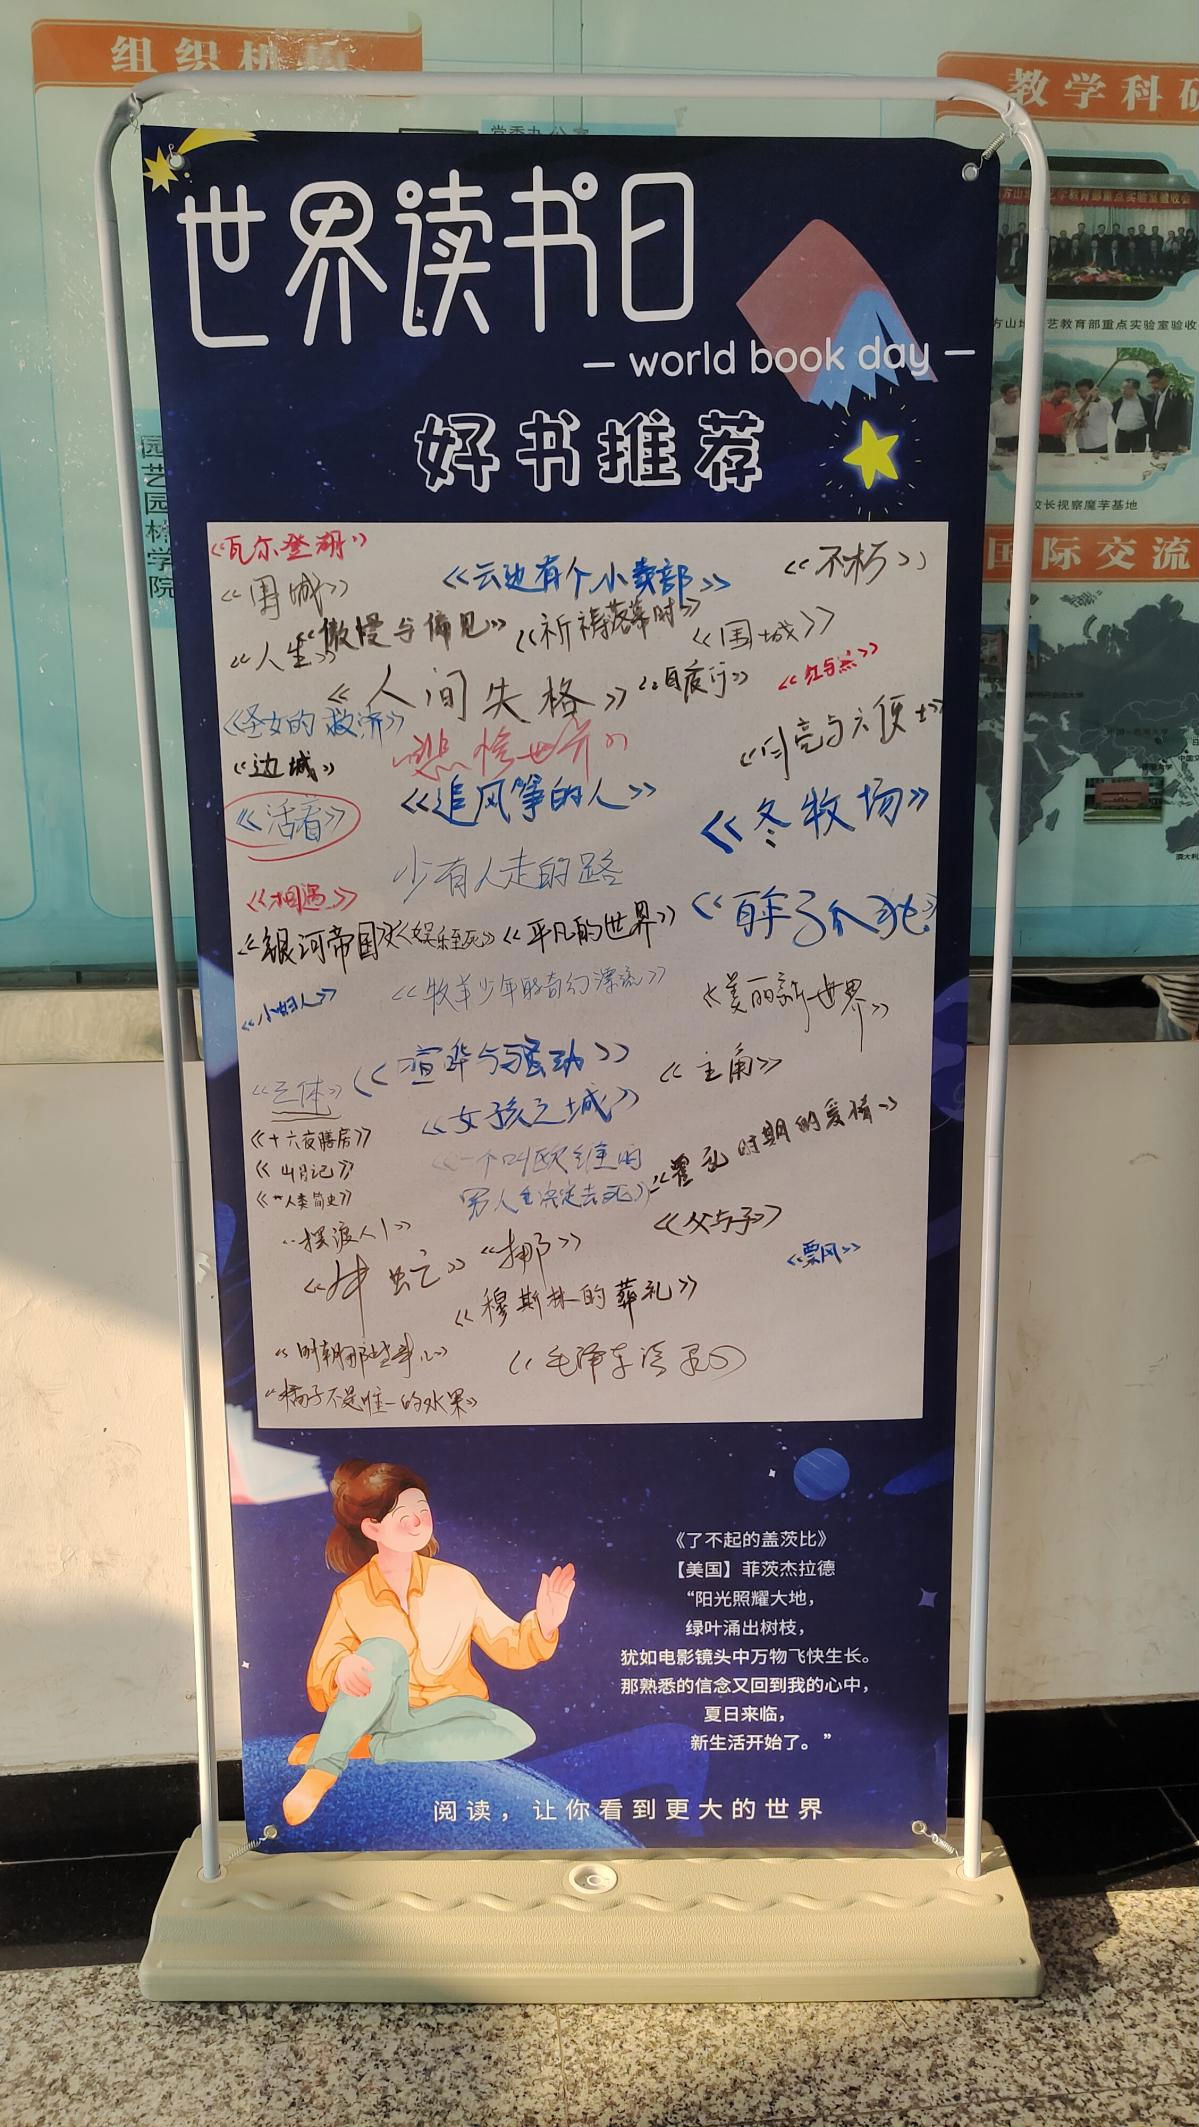 组织机构
教学科研
党委办公室
园艺园林学院
方山地园艺教育部重点实验室验收
校长视察魔芋基地
国际交流
世界读书日
— world book day —
好书推荐
《瓦尔登湖》
《围城》
《云边有个小卖部》
《不朽》
《人生》
《傲慢与偏见》
《祈祷落幕时》
《围城》
《人间失格》
《白夜行》
《红与黑》
《圣女的救济》
《悲惨世界》
《月亮与六便士》
《边城》
《追风筝的人》
《活着》
《冬牧场》
少有人走的路
《相遇》
《百年孤独》
《银河帝国》
《娱乐至死》
《平凡的世界》
《小妇人》
《牧羊少年的奇幻漂流》
《美丽新世界》
《三体》
《喧哗与骚动》
《主角》
《女孩之城》
《十六夜膳房》
《山月记》
《人类简史》
《一个叫欧维的
男人决定去死》
《霍乱时期的爱情》
《摆渡人1》
《父与子》
《牛虻》
《挪》
《飘风》
《穆斯林的葬礼》
《明朝那些事儿》
《毛泽东语录》
《橘子不是唯一的水果》
《了不起的盖茨比》
【美国】菲茨杰拉德
“阳光照耀大地，
绿叶涌出树枝，
犹如电影镜头中万物飞快生长。
那熟悉的信念又回到我的心中，
夏日来临，
新生活开始了。”
阅读，让你看到更大的世界